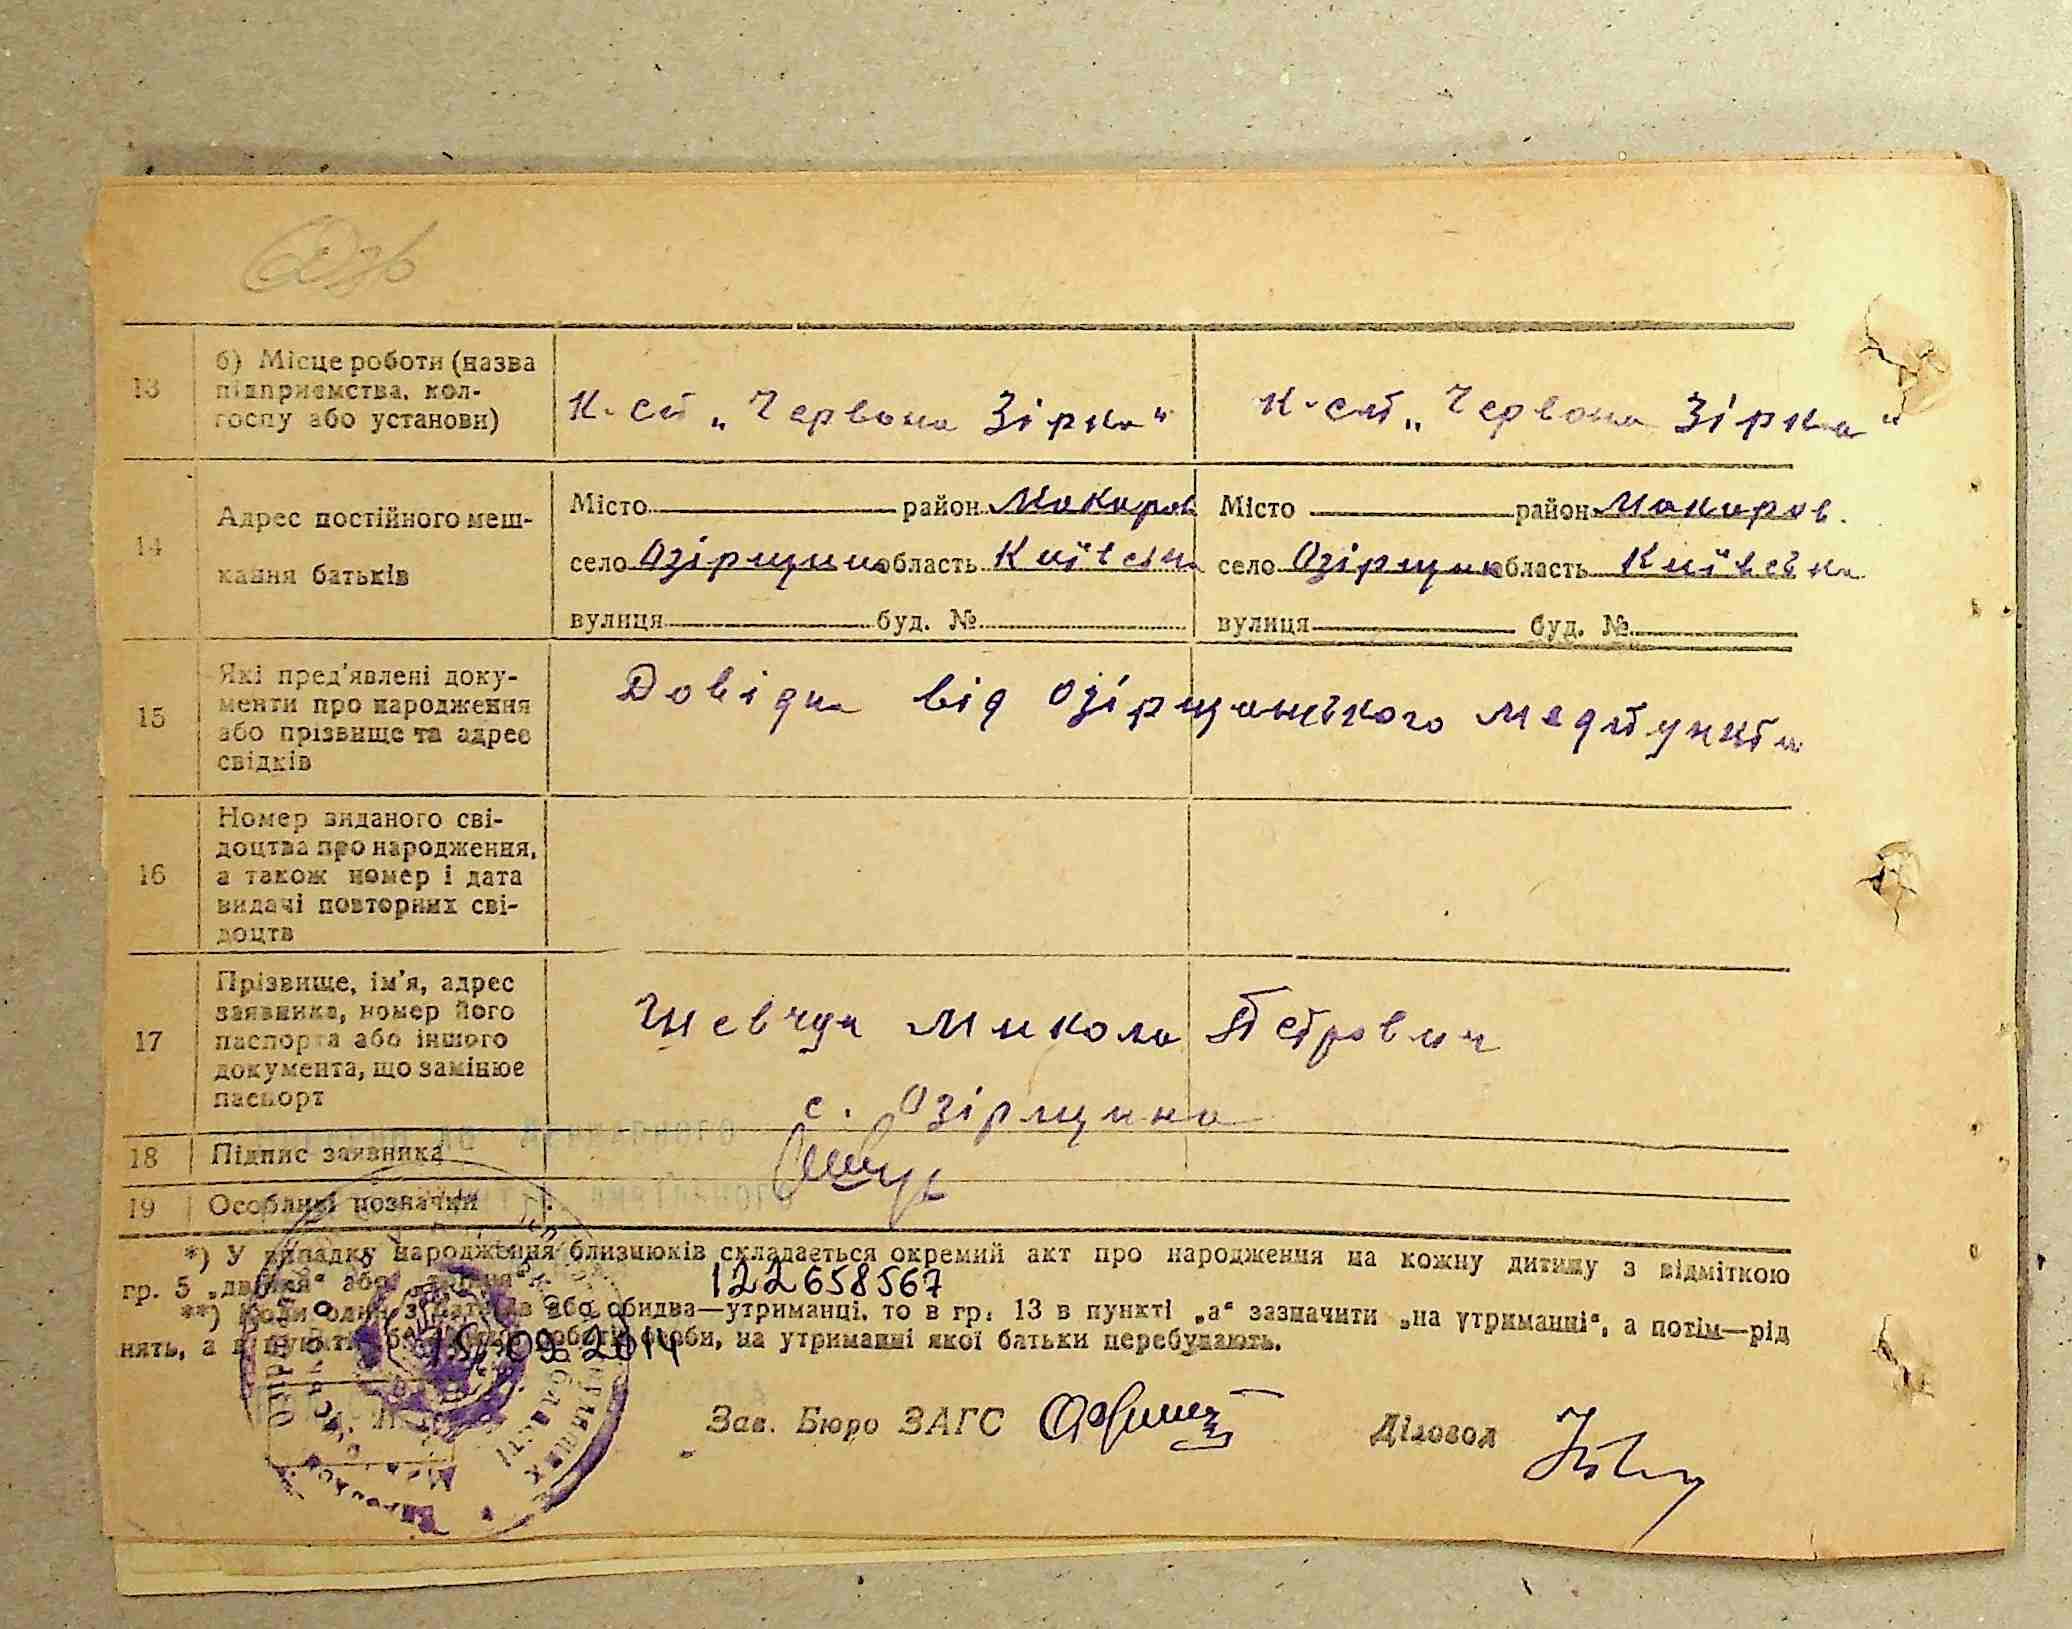 13
б) Місце роботи (назва
підприємства, кол-
госпу або установи)
К-сп „Червона Зірка“
К-сп „Червона Зірка“
14
Адрес постійного меш-
кання батьків
Місто район Макаров
село Озірщина область Київська
вулиця буд. №
Місто район Макаров.
село Озірщина область Київська
вулиця буд. №
15
Які пред'явлені доку-
менти про народження
або прізвище та адрес
свідків
Довідка від Озірщанського медпункту
16
Номер виданого сві-
доцтва про народження,
а також номер і дата
видачі повторних сві-
доцтв
17
Прізвище, ім'я, адрес
заявника, номер його
паспорта або іншого
документа, що замінює
паспорт
Шевчук Микола Петрович
с. Озірщина
18
Підпис заявника
19
Особливі позначки
*) У випадку народження близнюків складається окремий акт про народження на кожну дитину з відміткою
гр. 5 „двійня“ або „трійня“
122658567
**) Коли один з батьків або обидва—утриманці, то в гр. 13 в пункті „а“ зазначити „на утриманні“, а потім—рід
нять, а в пункті роботи особи, на утриманні якої батьки перебувають.
15.09.2014
Зав. Бюро ЗАГС
Діловод